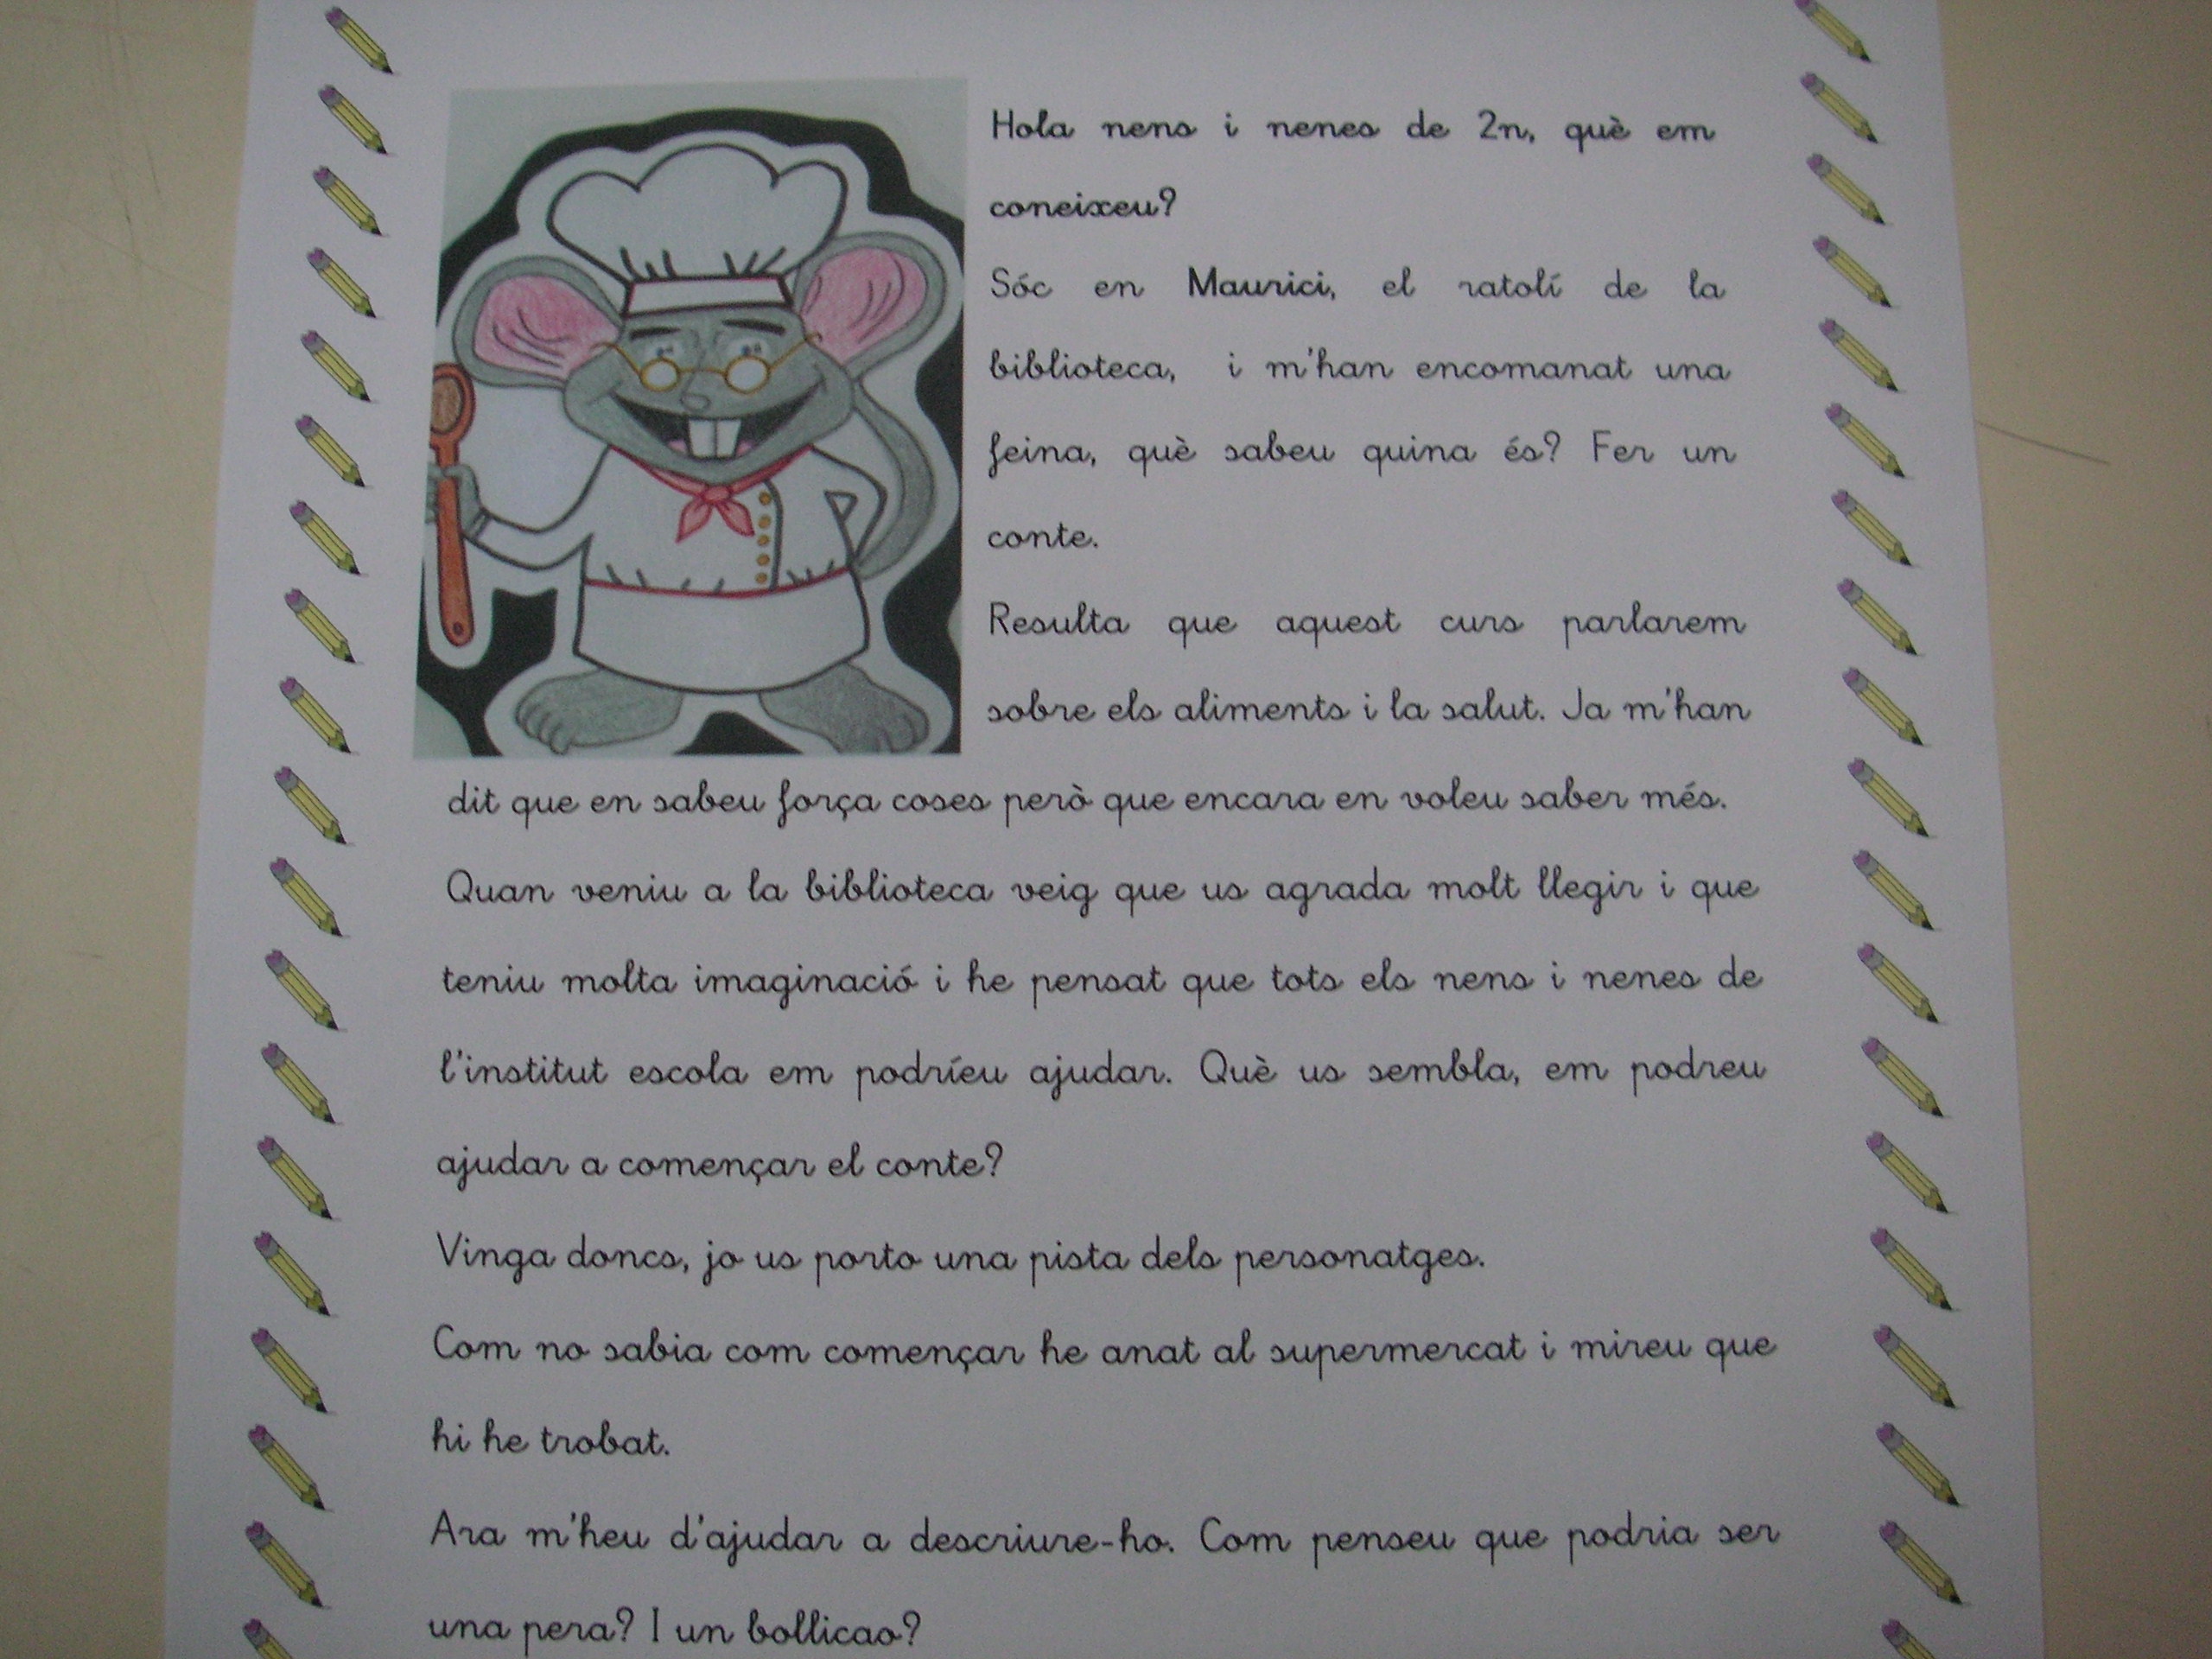 Hola nens i nenes de 2n, què em
coneixeu?
Sóc en Maurici, el ratolí de la
biblioteca, i m'han encomanat una
feina, què sabeu quina és? Fer un
conte.
Resulta que aquest curs parlarem
sobre els aliments i la salut. Ja m'han
dit que en sabeu força coses però que encara en voleu saber més.
Quan veniu a la biblioteca veig que us agrada molt llegir i que
teniu molta imaginació i he pensat que tots els nens i nenes de
l'institut escola em podríeu ajudar. Què us sembla, em podreu
ajudar a començar el conte?
Vinga doncs, jo us porto una pista dels personatges.
Com no sabia com començar he anat al supermercat i mireu que
hi he trobat.
Ara m'heu d'ajudar a descriure-ho. Com penseu que podria ser
una pera? I un bollicao?